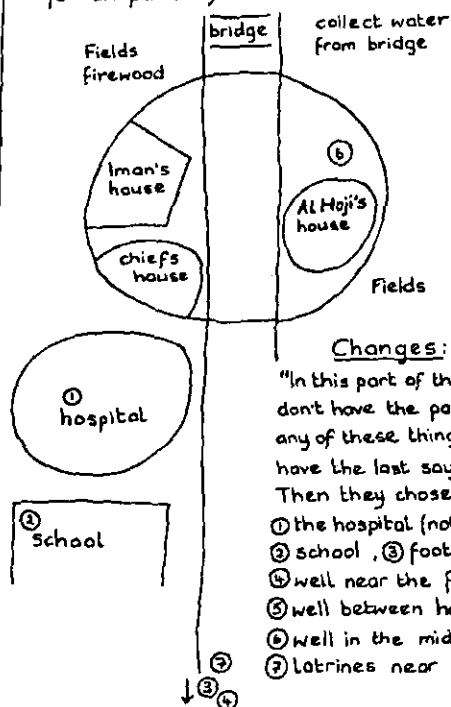 bridge
collect water
from bridge
Fields
firewood
⑥
Iman's
house
Al Haji's
house
chief's
house
Fields
①
hospital
②
school
Changes:
"In this part of th
don't have the po
any of these thing
have the last say
Then they chose
① the hospital (not
② school, ③ foot
④ well near the f
⑤ well between ho
⑥ well in the mid
⑦ latrines near
⑦
③
④